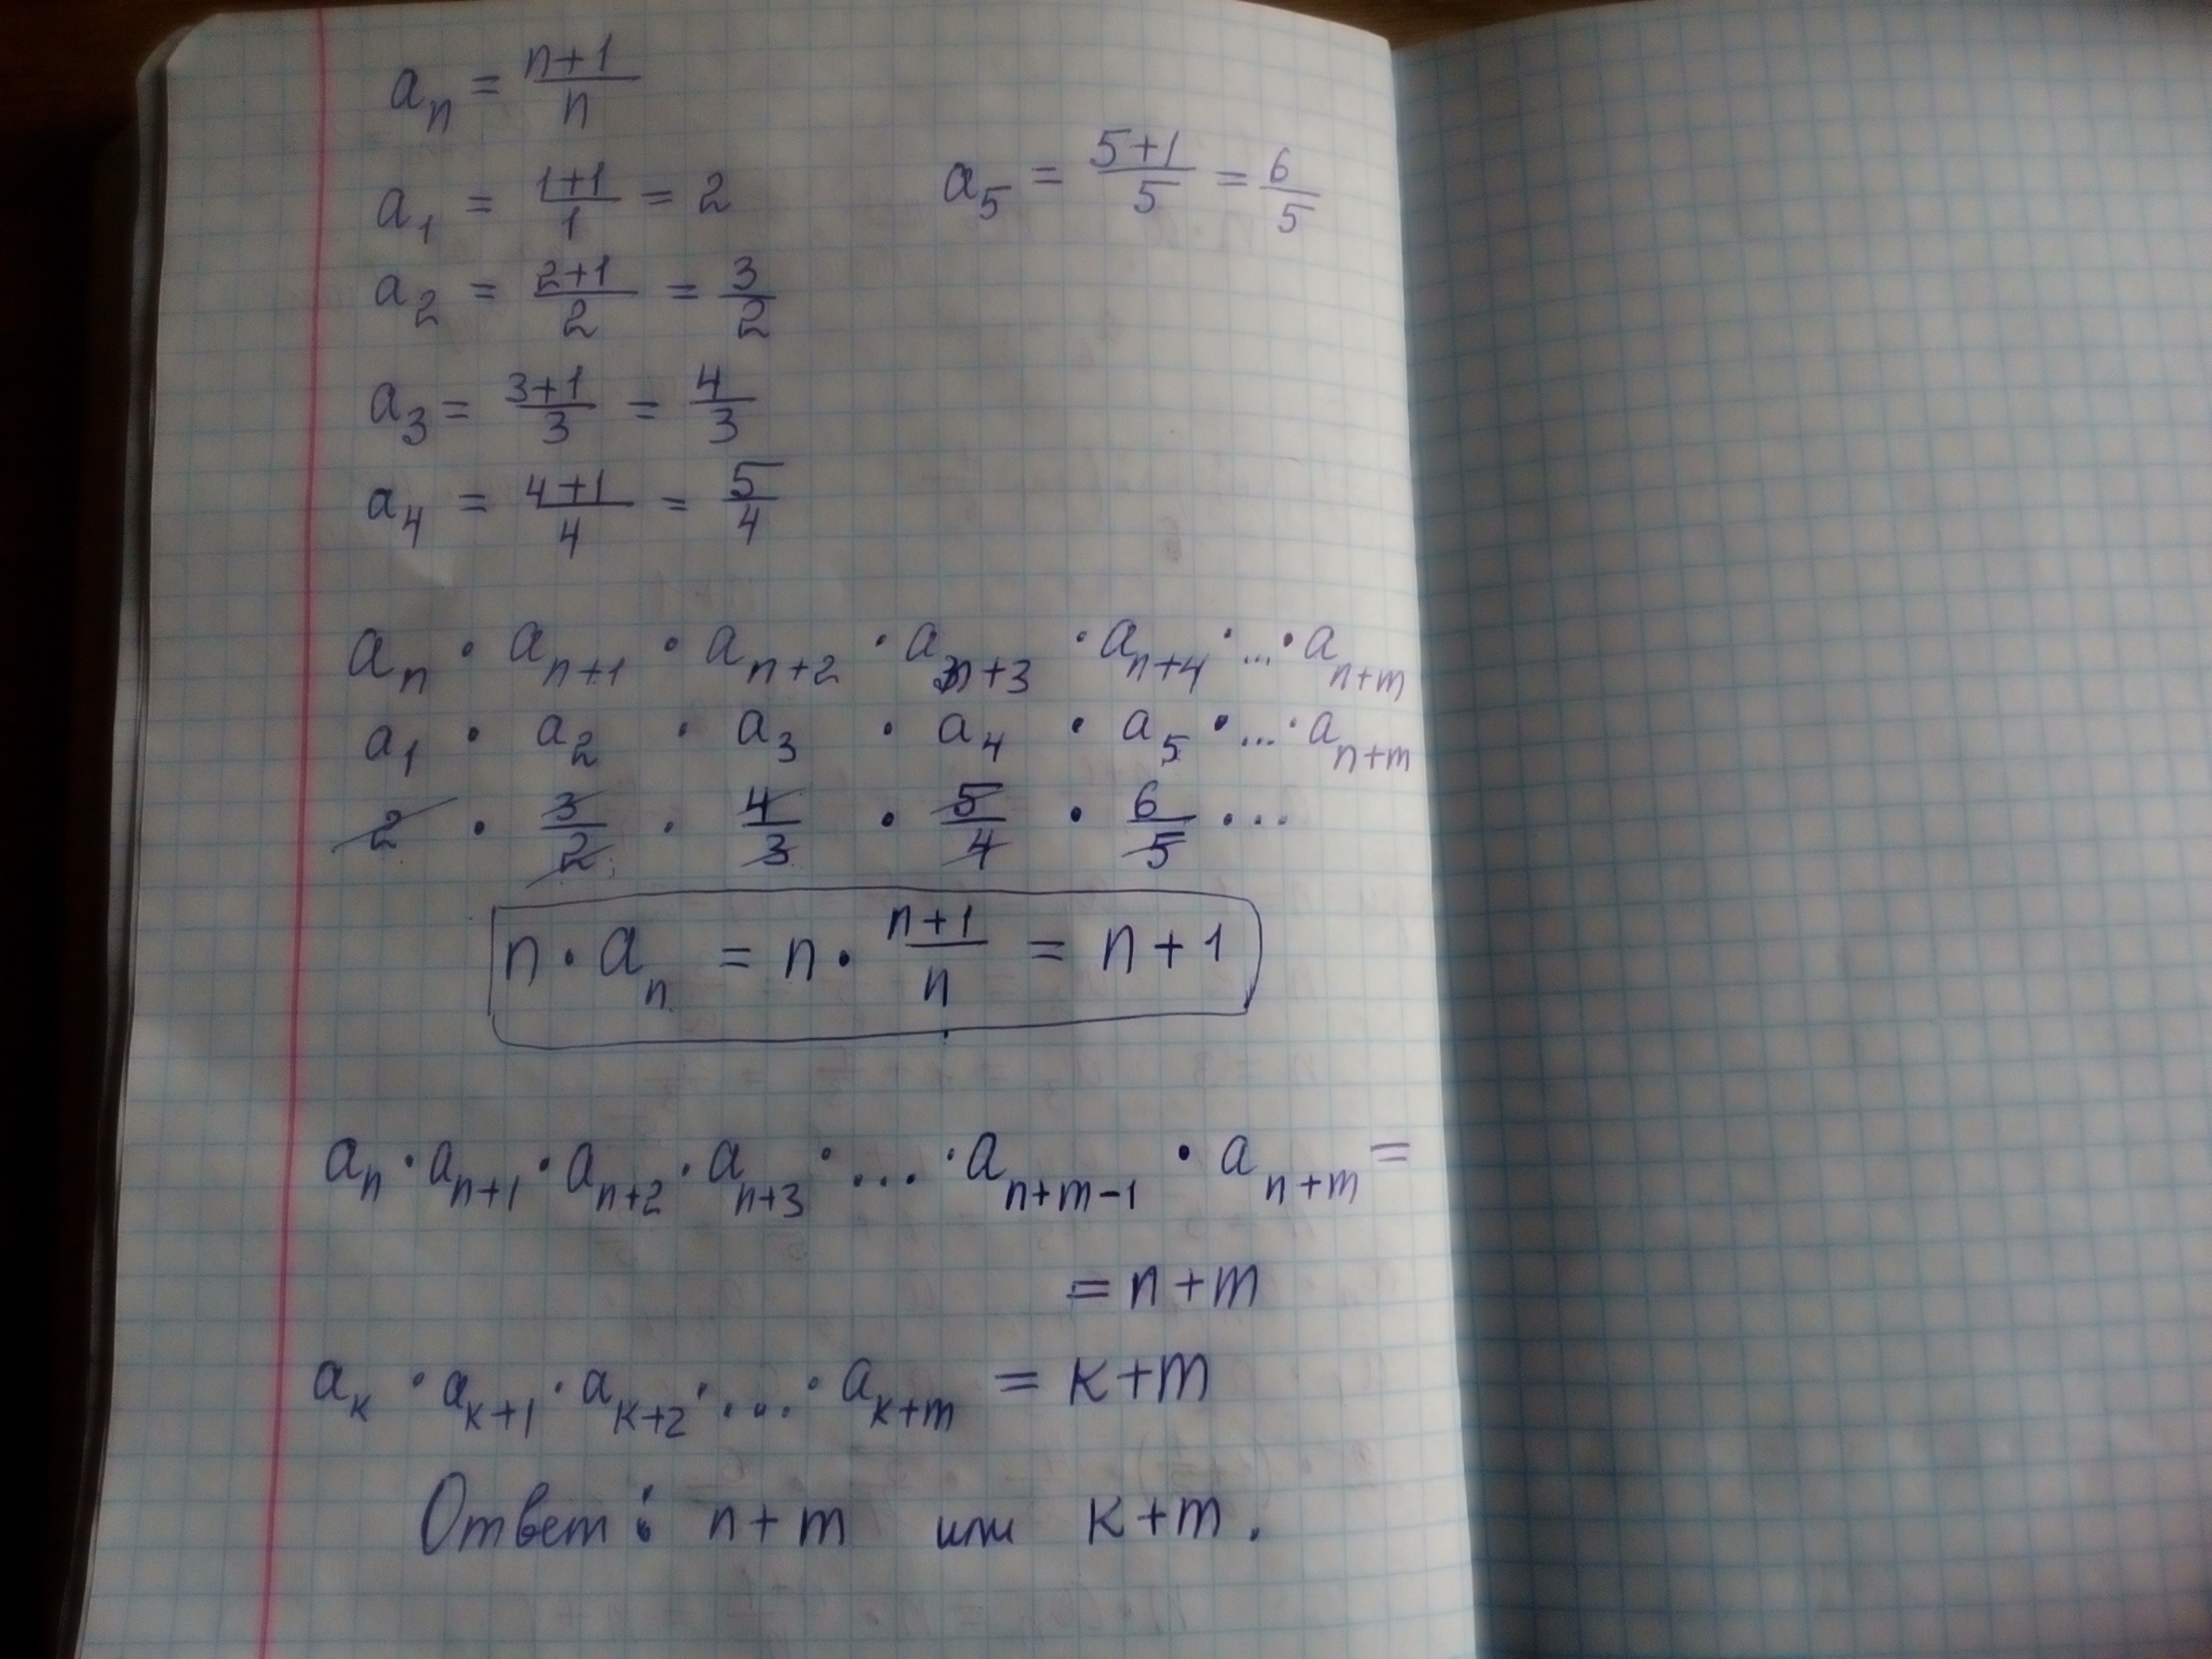 aₙ = (n+1)/n
a₁ = (1+1)/1 = 2
a₅ = (5+1)/5 = 6/5
a₂ = (2+1)/2 = 3/2
a₃ = (3+1)/3 = 4/3
a₄ = (4+1)/4 = 5/4
aₙ · aₙ₊₁ · aₙ₊₂ · aₙ₊₃ · aₙ₊₄ · ... · aₙ₊ₘ
a₁ · a₂ · a₃ · a₄ · a₅ · ... · aₙ₊ₘ
2 · 3/2 · 4/3 · 5/4 · 6/5 · ...
n · aₙ = n · (n+1)/n = n + 1
aₙ · aₙ₊₁ · aₙ₊₂ · aₙ₊₃ · ... · aₙ₊ₘ₋₁ · aₙ₊ₘ =
= n + m
aₖ · aₖ₊₁ · aₖ₊₂ · ... · aₖ₊ₘ = к + m
Ответ: n + m или к + m.